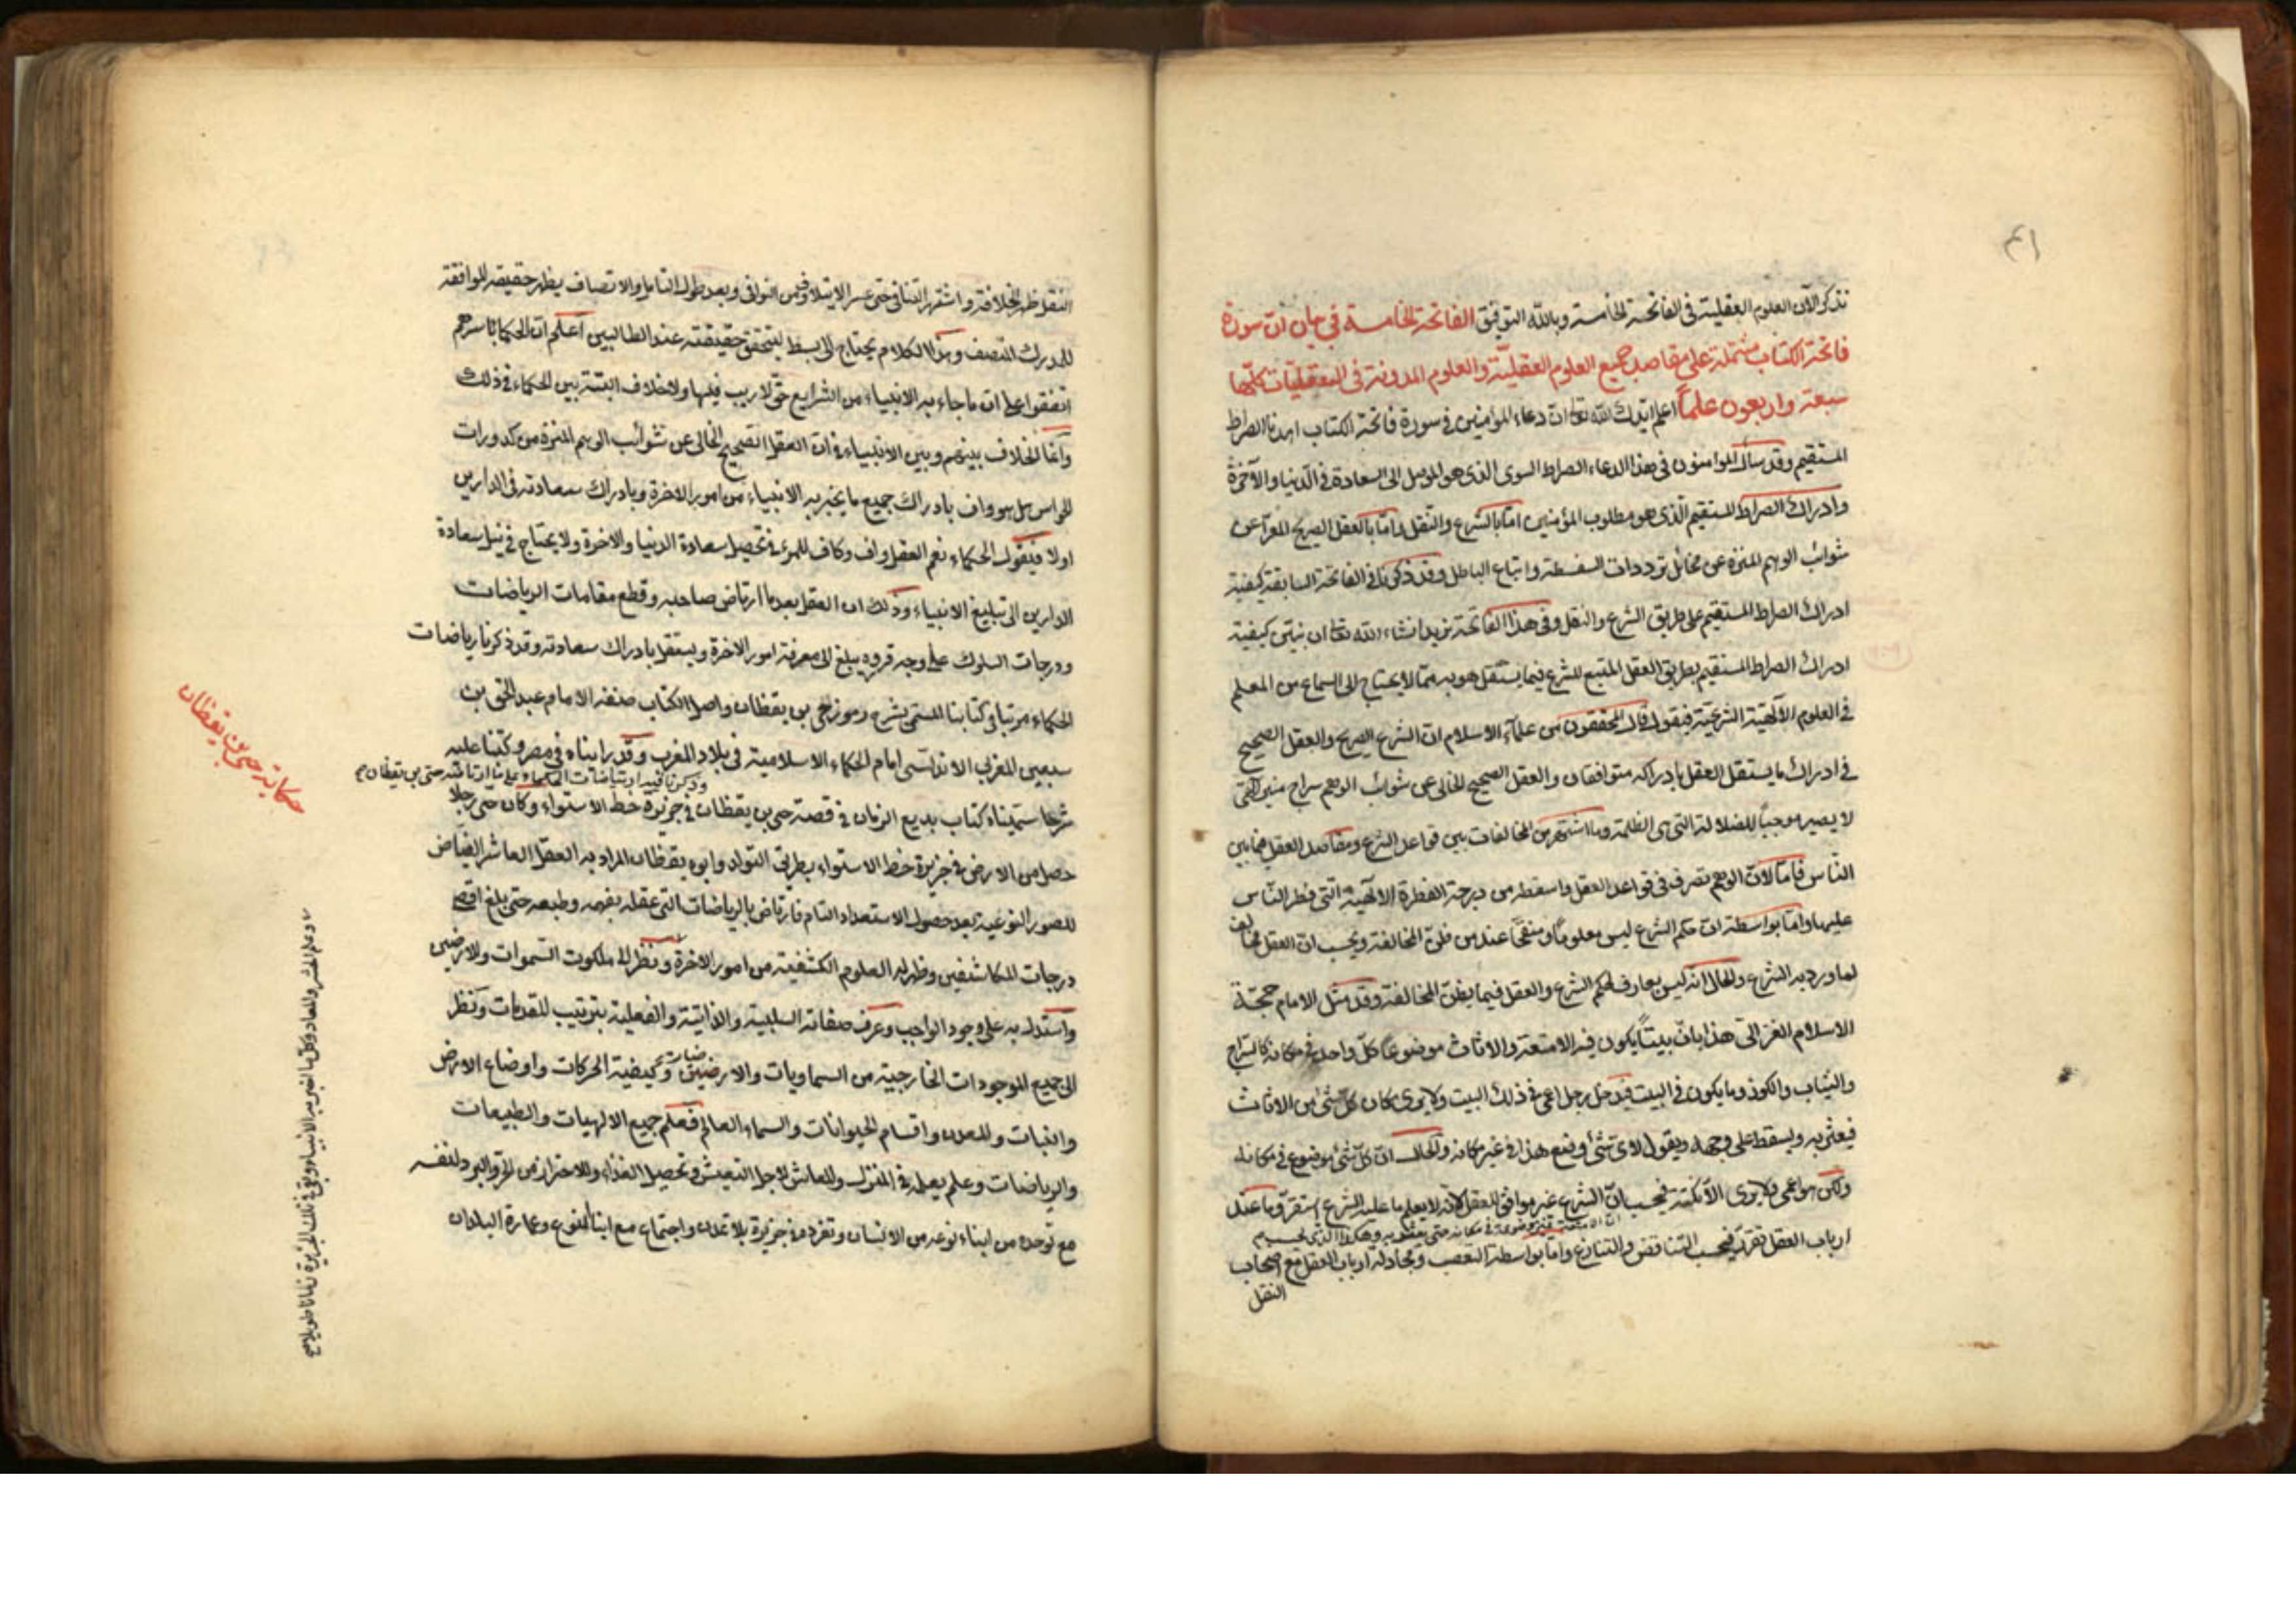 ٤١
نذكر الآن العلوم العقلية في الفاتحة الخامسة وبالله التوفيق الفاتحة الخامسة في بيان ان سورة
فاتحة الكتاب مشتملة على مقاصد جميع العلوم العقلية والعلوم المدونة في العقليات كلها
سبعة واربعون علماً اعلم ايدك الله تعا ان دعاء المؤمنين في سورة فاتحة الكتاب اهدنا الصراط
المستقيم وقد سأل المؤمنون في هذا الدعاء الصراط السوى الذى هو الموصل الى السعادة في الدنيا والآخرة
وادراك الصراط المستقيم الذى هو مطلوب المؤمنين امّا بالشرع والنقل وامّا بالعقل الصريح المعرّا عن
شوائب الوهم المنزه عن مخائل ترددات السفسطة واتباع الباطل وقد ذكرنا في الفاتحة السابقة كيفية
ادراك الصراط المستقيم على طريق الشرع والنقل وفى هذا الفاتحة نريد انشاء الله تعا ان نبيّن كيفية
ادراك الصراط المستقيم بطريق العقل المتبع للشرع فيما يستقل هو به ممّا لا يحتاج الى السماع من المعلم
في العلوم الآلهية الشرعيّة فنقول قال المحققون من علماء الاسلام ان الشرع الصريح والعقل الصحيح
في ادراك ما يستقل العقل بادراكه متوافقان والعقل الصحيح الخالى عن شوائب الوهم سراج منير لكن
لا يصير موجباً للضلالة التى هى الظلمة وما اشتهر من المخالفات بين قواعد الشرع ومقاصد العقل فيما بين
الناس فامّا لانّ الوهم تصرف في قواعد العقل واسقطه من درجة الفطرة الالهية التى فطر الناس
عليها وامّا بواسطة انّ حكم الشرع ليس معلوماً ومنقحاً عند من ظن المخالفة ويحسب ان العقل مخالف
لما ورد به الشرع والحال انّه ليس بعارف لحكم الشرع والعقل فيما يظن المخالفة وقد مثّل الامام حجّة
الاسلام الغزالى هذا بانّ بيتاً يكون فيه الامتعة والاثاث موضوعاً كلّ واحد في مكانه كالسراج
والثياب والكوز وما يكون في البيت فيدخل رجل اعمى في ذلك البيت ولا يرى مكان كل شئ من الاثاث
فيعثر به ويسقط على وجهه ويقول لاى شئ وضع هذا في غير مكانه والحال انّ كلّ شئ موضوع في مكانه
ولكن هو اعمى ولا يرى الأمكنة فيحسب انّ الشرع غير موافق للعقل لانّه لا يعلم ما عليه الشرع استقر وما عند
ان الامتعة غير موضوعة في مكانه حتى يعثر به وهكذا الذى يحسب
ارباب العقل تقرر فيحسب التناقض والتنازع وامّا بواسطة التعصب ومجادلة ارباب العقل مع اصحاب
النقل
النقل ظهر الخلافة واشتهر التنافى حتى عسر الايتلاف من التوافى وبعد طول التامل والاتصاف يظهر حقيقة الموافقة
للمدرك المنصف وهذا الكلام يحتاج الى بسط ليتحقق حقيقته عند الطالبين اعلم ان الحكماء باسرهم
اتفقوا على ان ما جاء به الانبياء من الشرايع حق لا ريب فيها ولا خلاف البتة بين الحكماء في ذلك
وانما الخلاف بينهم وبين الانبياء في ان العقل الصحيح الخالى عن شوائب الوهم المنزه من كدورات
الحواس هل هو واف بادراك جميع ما يخبر به الانبياء من امور الاخرة وبادراك سعادته في الدارين
اولا فيقول الحكماء نعم العقل واف وكاف للمرء في تحصيل سعادة الدنيا والاخرة ولا يحتاج في نيل سعادة
الدارين الى تبليغ الانبياء وذلك ان العقل بعد ما ارتاض صاحبه وقطع مقامات الرياضات
ودرجات السلوك على وجه قروه يبلغ الى معرفة امور الاخرة ويستقل بادراك سعادته وقد ذكرنا رياضات
الحكماء مرتبا في كتابنا المسمى بشرح رموز حى بن يقظان واصل الكتاب صنفه الامام عبد الحق بن
سبعين المغربى الاندلسى امام الحكماء الاسلامية في بلاد المغرب وقد رايناه في مصر وكتبنا عليه
وذكرنا فيه ارتياضات الحكماء على ما ارتاضه حى بن يقظان
شرحا سميناه كتاب بديع الزمان في قصة حى بن يقظان في جزيرة خط الاستواء وكان حى رجلا
حصل من الارض في جزيرة خط الاستواء بطريق التولد وابوه يقظان المراد به العقل العاشر الفياض
للصور النوعية بعد حصول الاستعداد التام فارتاض بالرياضات التى عقله بفهمه وطبعه حتى بلغ اقصى
درجات المكاشفين وظهر له العلوم الكشفية من امور الاخرة ونظر الى ملكوت السموات والارضين
واستدل به على وجود الواجب وعرف صفاته السلبية والذاتية والفعلية بترتيب المقدمات ونظر
الى جميع الموجودات الخارجية من السماويات والارضيات وكيفية الحركات واوضاع الارض
والنبات والمعدن واقسام الحيوانات والسماء العالم فعلم جميع الالهيات والطبيعات
والرياضات وعلم يعمله في المنزل والمعاش لاجل التعيش وتحصيل الغذاء والاحتراز من الحر والبرد لنفسه
مع توحده من ابناء نوعه من الانسان وتفرده في جزيرة بلا تمدن واجتماع مع ابناء النوع وعمارة البلدان
حكاية حى بن يقظان
وعلم الحشر والمعاد وكل ما اخبر به الانبياء وبقى في تلك الجزيرة زمانا طويلا صح